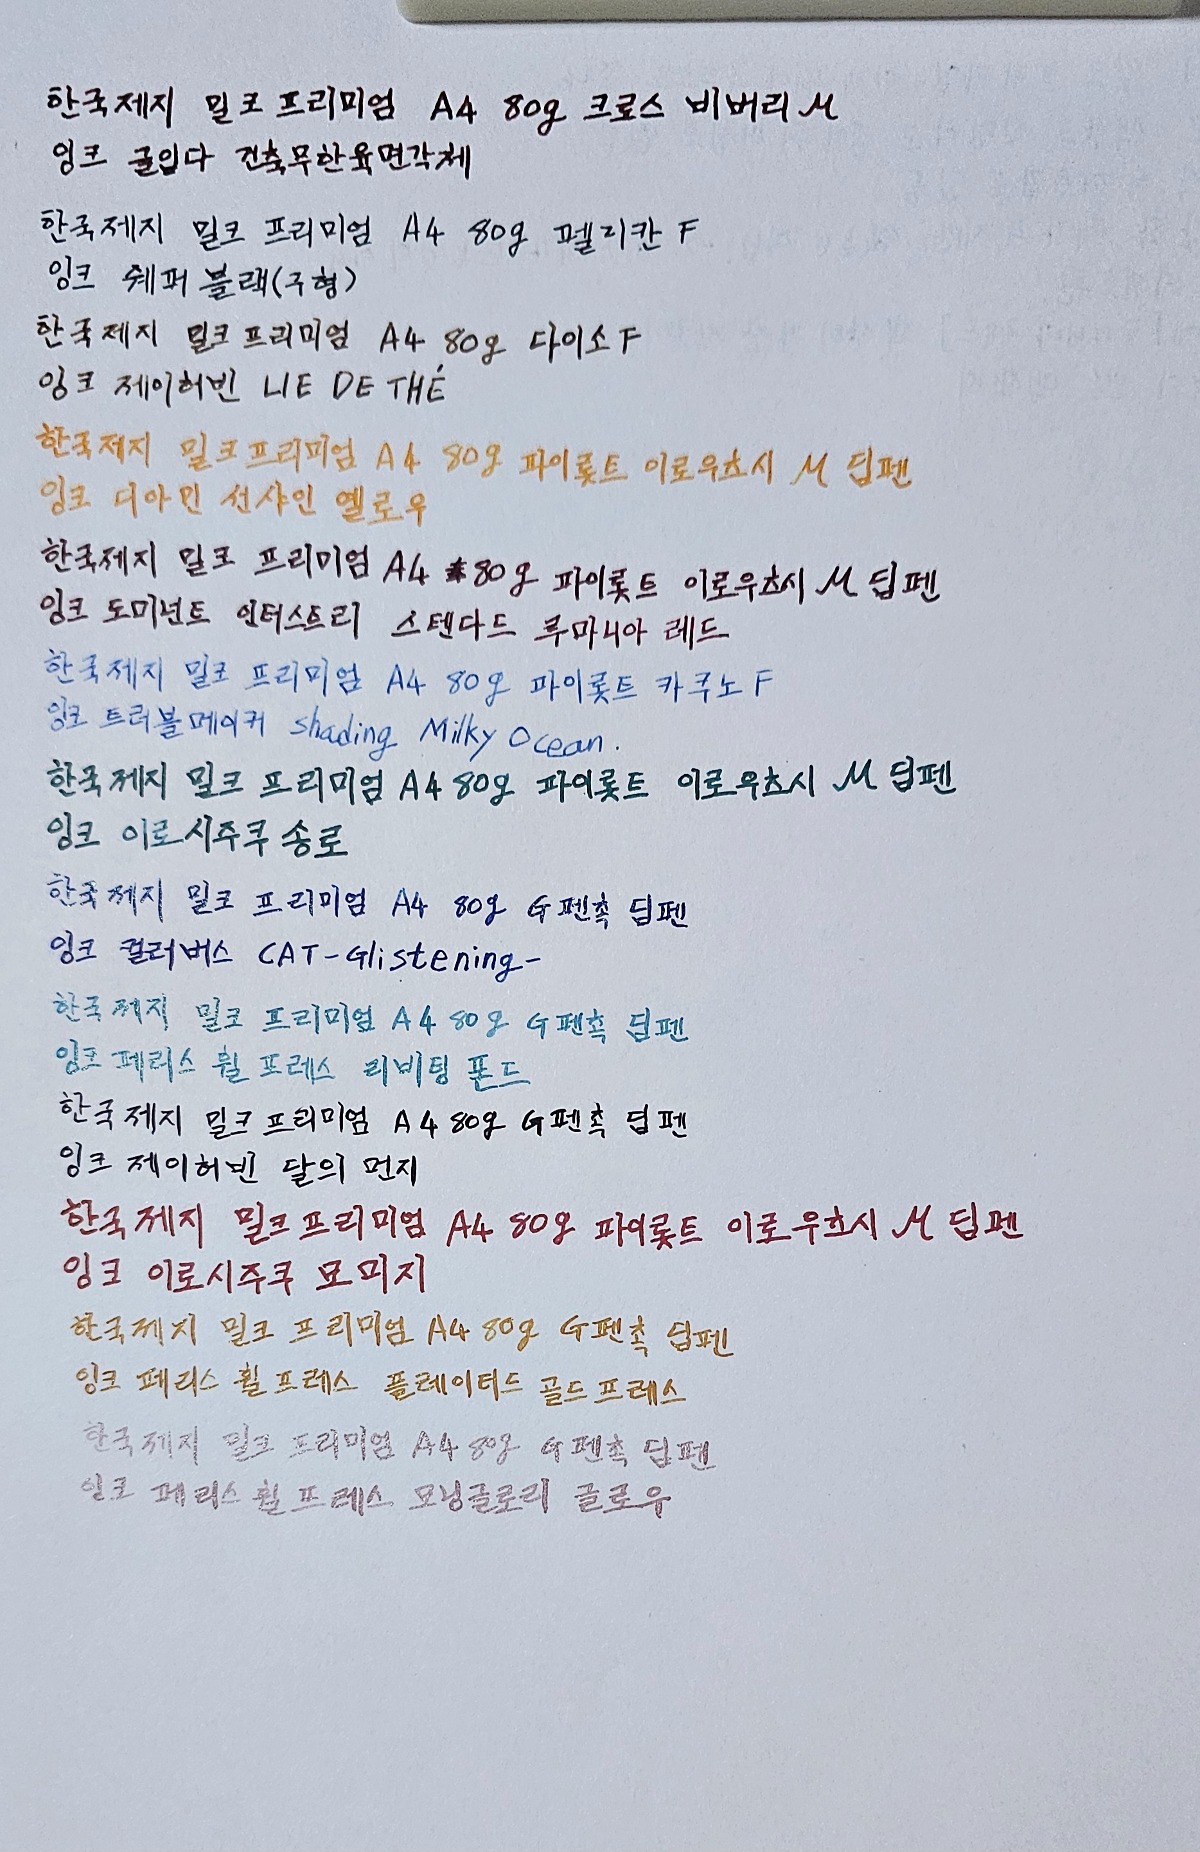 한국제지 밀크 프리미엄 A4 80g 크로스 비버리 M
잉크 글입다 건축무한육면각체
한국제지 밀크 프리미엄 A4 80g 펠리칸 F
잉크 쉐퍼 블랙(구형)
한국제지 밀크 프리미엄 A4 80g 다이소 F
잉크 제이허빈 LIE DE THÉ
한국제지 밀크 프리미엄 A4 80g 파이롯트 이로우츠시 M 딥펜
잉크 디아민 선샤인 옐로우
한국제지 밀크 프리미엄 A4 80g 파이롯트 이로우츠시 M 딥펜
잉크 도미넌트 인더스트리 스텐다드 루마니아 레드
한국제지 밀크 프리미엄 A4 80g 파이롯트 카쿠노 F
잉크 트러블메이커 shading Milky Ocean.
한국제지 밀크 프리미엄 A4 80g 파이롯트 이로우츠시 M 딥펜
잉크 이로시주쿠 송로
한국제지 밀크 프리미엄 A4 80g G펜촉 딥펜
잉크 컬러버스 CAT-Glistening-
한국제지 밀크 프리미엄 A4 80g G펜촉 딥펜
잉크 페리스 휠 프레스 리비팅 폰드
한국제지 밀크 프리미엄 A4 80g G펜촉 딥펜
잉크 제이허빈 달의 먼지
한국제지 밀크 프리미엄 A4 80g 파이롯트 이로우츠시 M 딥펜
잉크 이로시주쿠 모미지
한국제지 밀크 프리미엄 A4 80g G펜촉 딥펜
잉크 페리스 휠 프레스 플레이터드 골드 프레스
한국제지 밀크 프리미엄 A4 80g G펜촉 딥펜
잉크 페리스 휠 프레스 모닝글로리 글로우